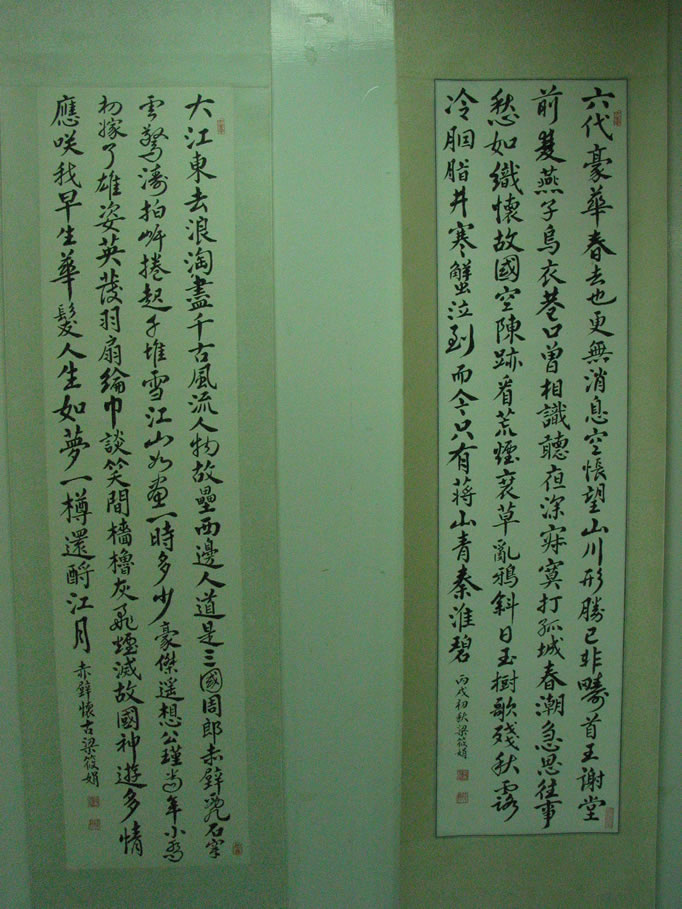 六代豪華春去也更無消息空悵望山川形勝已非疇昔王謝堂
前雙燕子烏衣巷口曾相識聽夜深寂寞打孤城春潮急思往事
愁如織懷故國空陳跡看荒煙衰草亂鴉斜日玉樹歌殘秋露
冷胭脂井寒蟹泣到而今只有蔣山青秦淮碧 丙戌初秋梁筱娟
大江東去浪淘盡千古風流人物故壘西邊人道是三國周郎赤壁亂石穿
雲驚濤拍岸捲起千堆雪江山如畫一時多少豪傑遥想公瑾當年小喬
初嫁了雄姿英發羽扇綸巾談笑間檣櫓灰飛煙滅故國神遊多情
應咲我早生華髮人生如夢一樽還酹江月 赤壁懷古梁筱娟